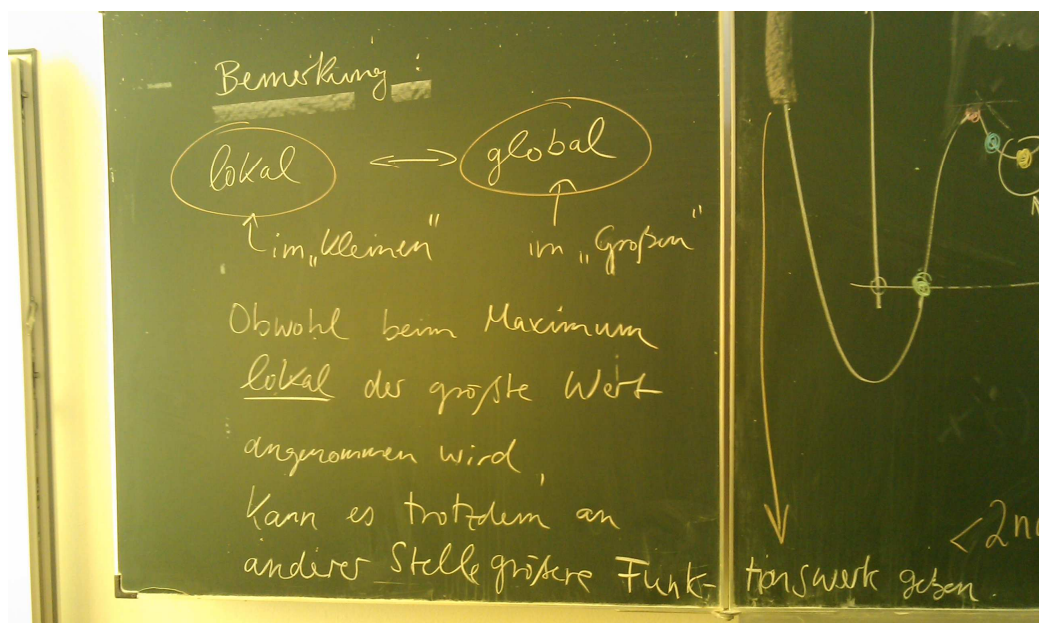 Bemerkung:
lokal ↔ global
im „Kleinen" im „Großen"
Obwohl beim Maximum
lokal der größte Wert
angenommen wird,
kann es trotzdem an
anderer Stelle größere Funktionswerte geben.